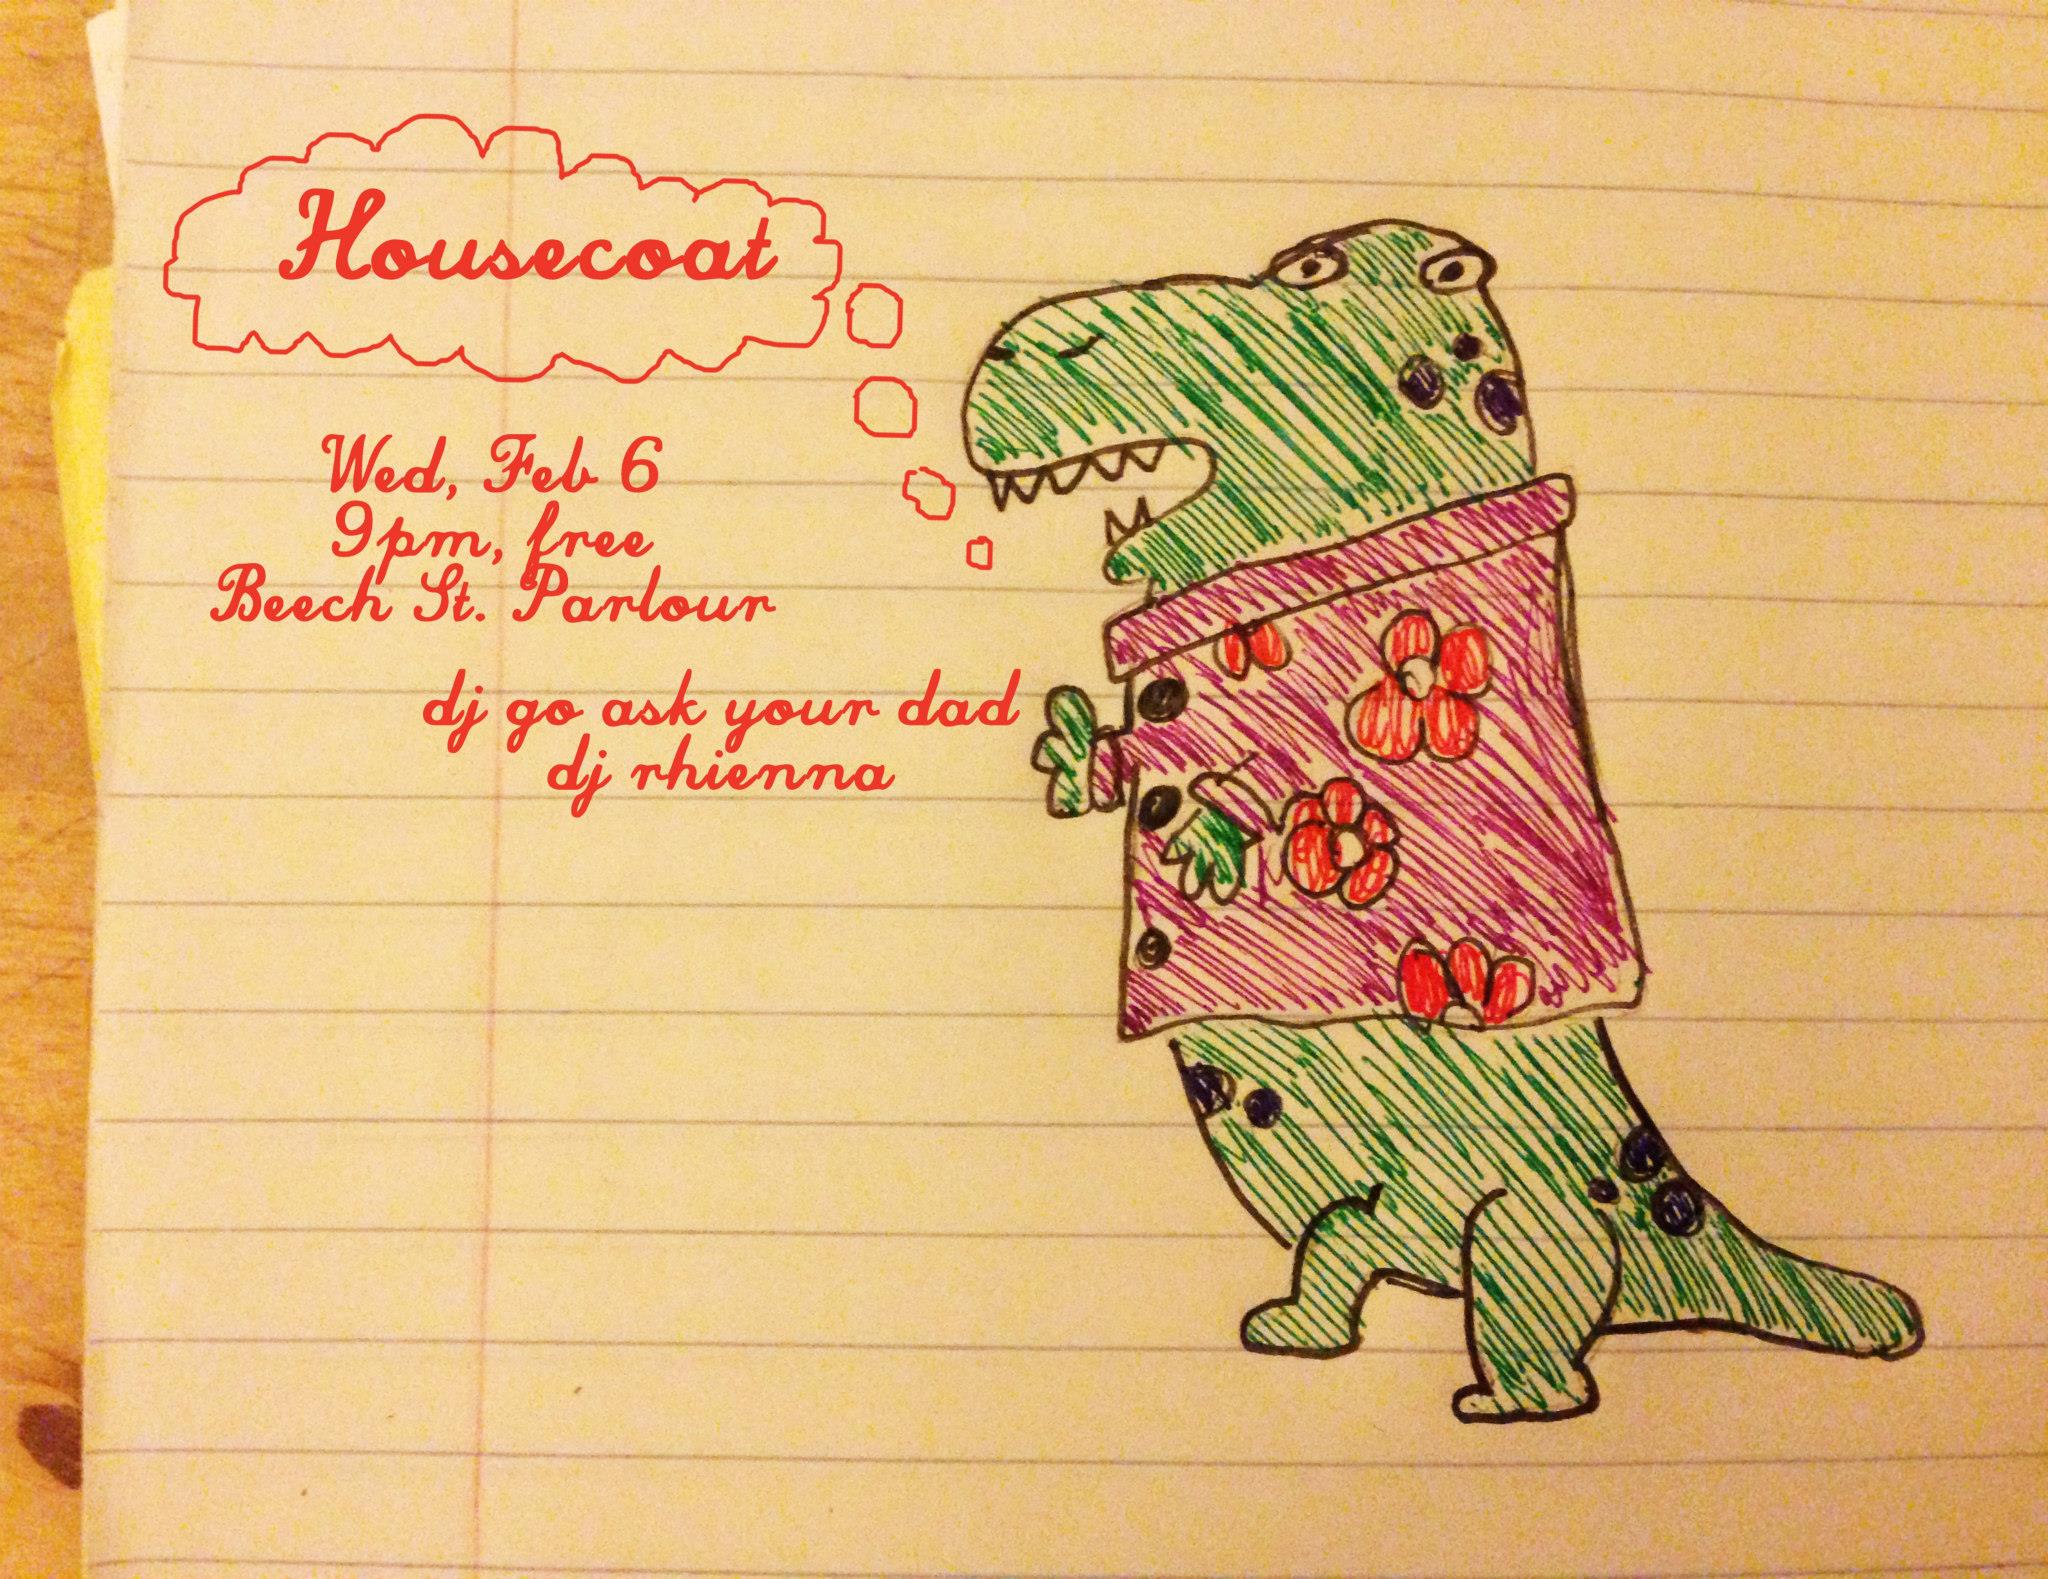 Housecoat
Wed, Feb 6
9pm, free
Beech St. Parlour
dj go ask your dad
dj rhienna